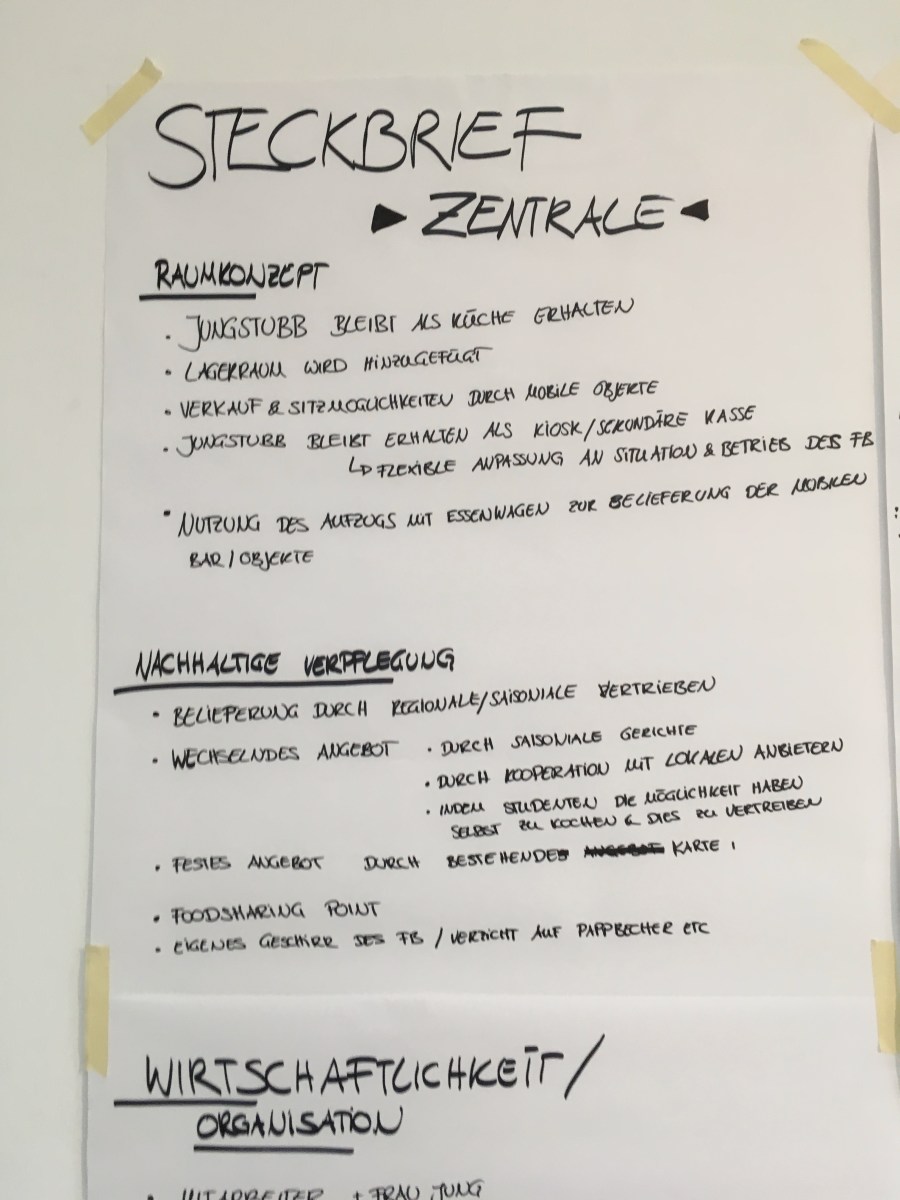 STECKBRIEF
▶ ZENTRALE ◀
RAUMKONZEPT
• JUNGSTUBB BLEIBT ALS KÜCHE ERHALTEN
• LAGERRAUM WIRD HINZUGEFÜGT
• VERKAUF & SITZMÖGLICHKEITEN DURCH MOBILE OBJEKTE
• JUNGSTUBB BLEIBT ERHALTEN ALS KIOSK/SEKUNDÄRE KASSE
↳ FLEXIBLE ANPASSUNG AN SITUATION & BETRIEB DES FB
• NUTZUNG DES AUFZUGS MIT ESSENWAGEN ZUR BELIEFERUNG DER MOBILEN
BAR / OBJEKTE
NACHHALTIGE VERPFLEGUNG
• BELIEFERUNG DURCH REGIONALE/SAISONIALE VERTRIEBEN
• WECHSELNDES ANGEBOT • DURCH SAISONIALE GERICHTE
• DURCH KOOPERATION MIT LOKALEN ANBIETERN
• INDEM STUDENTEN DIE MÖGLICHKEIT HABEN
SELBST ZU KOCHEN & DIES ZU VERTREIBEN
• FESTES ANGEBOT DURCH BESTEHENDE KARTE
• FOODSHARING POINT
• EIGENES GESCHIRR DES FB / VERZICHT AUF PAPPBECHER ETC
WIRTSCHAFTLICHKEIT /
ORGANISATION
• MITARBEITER + FRAU JUNG